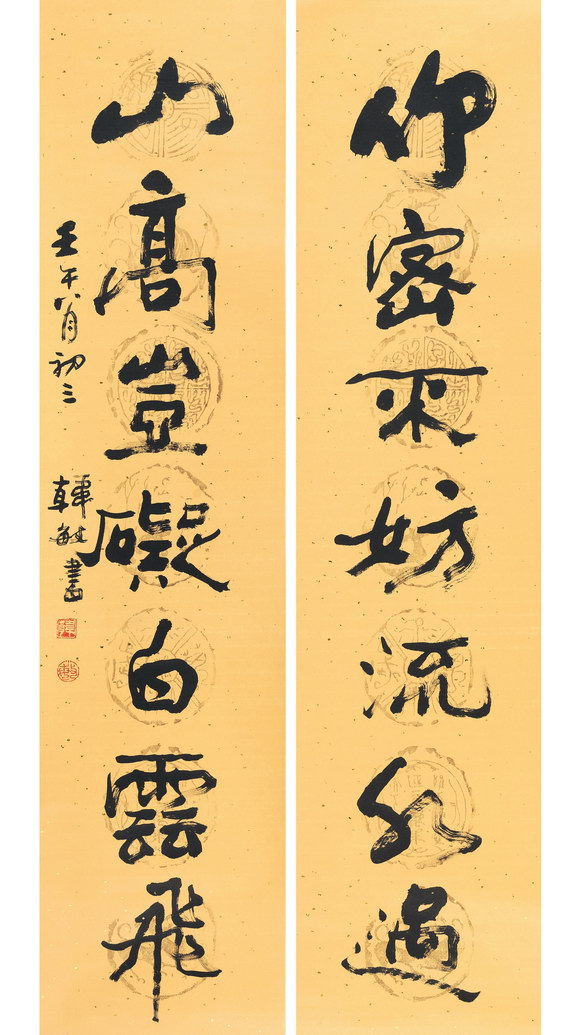 竹密不妨流水過
山高豈礙白雲飛
壬午八月初三 韓敏書